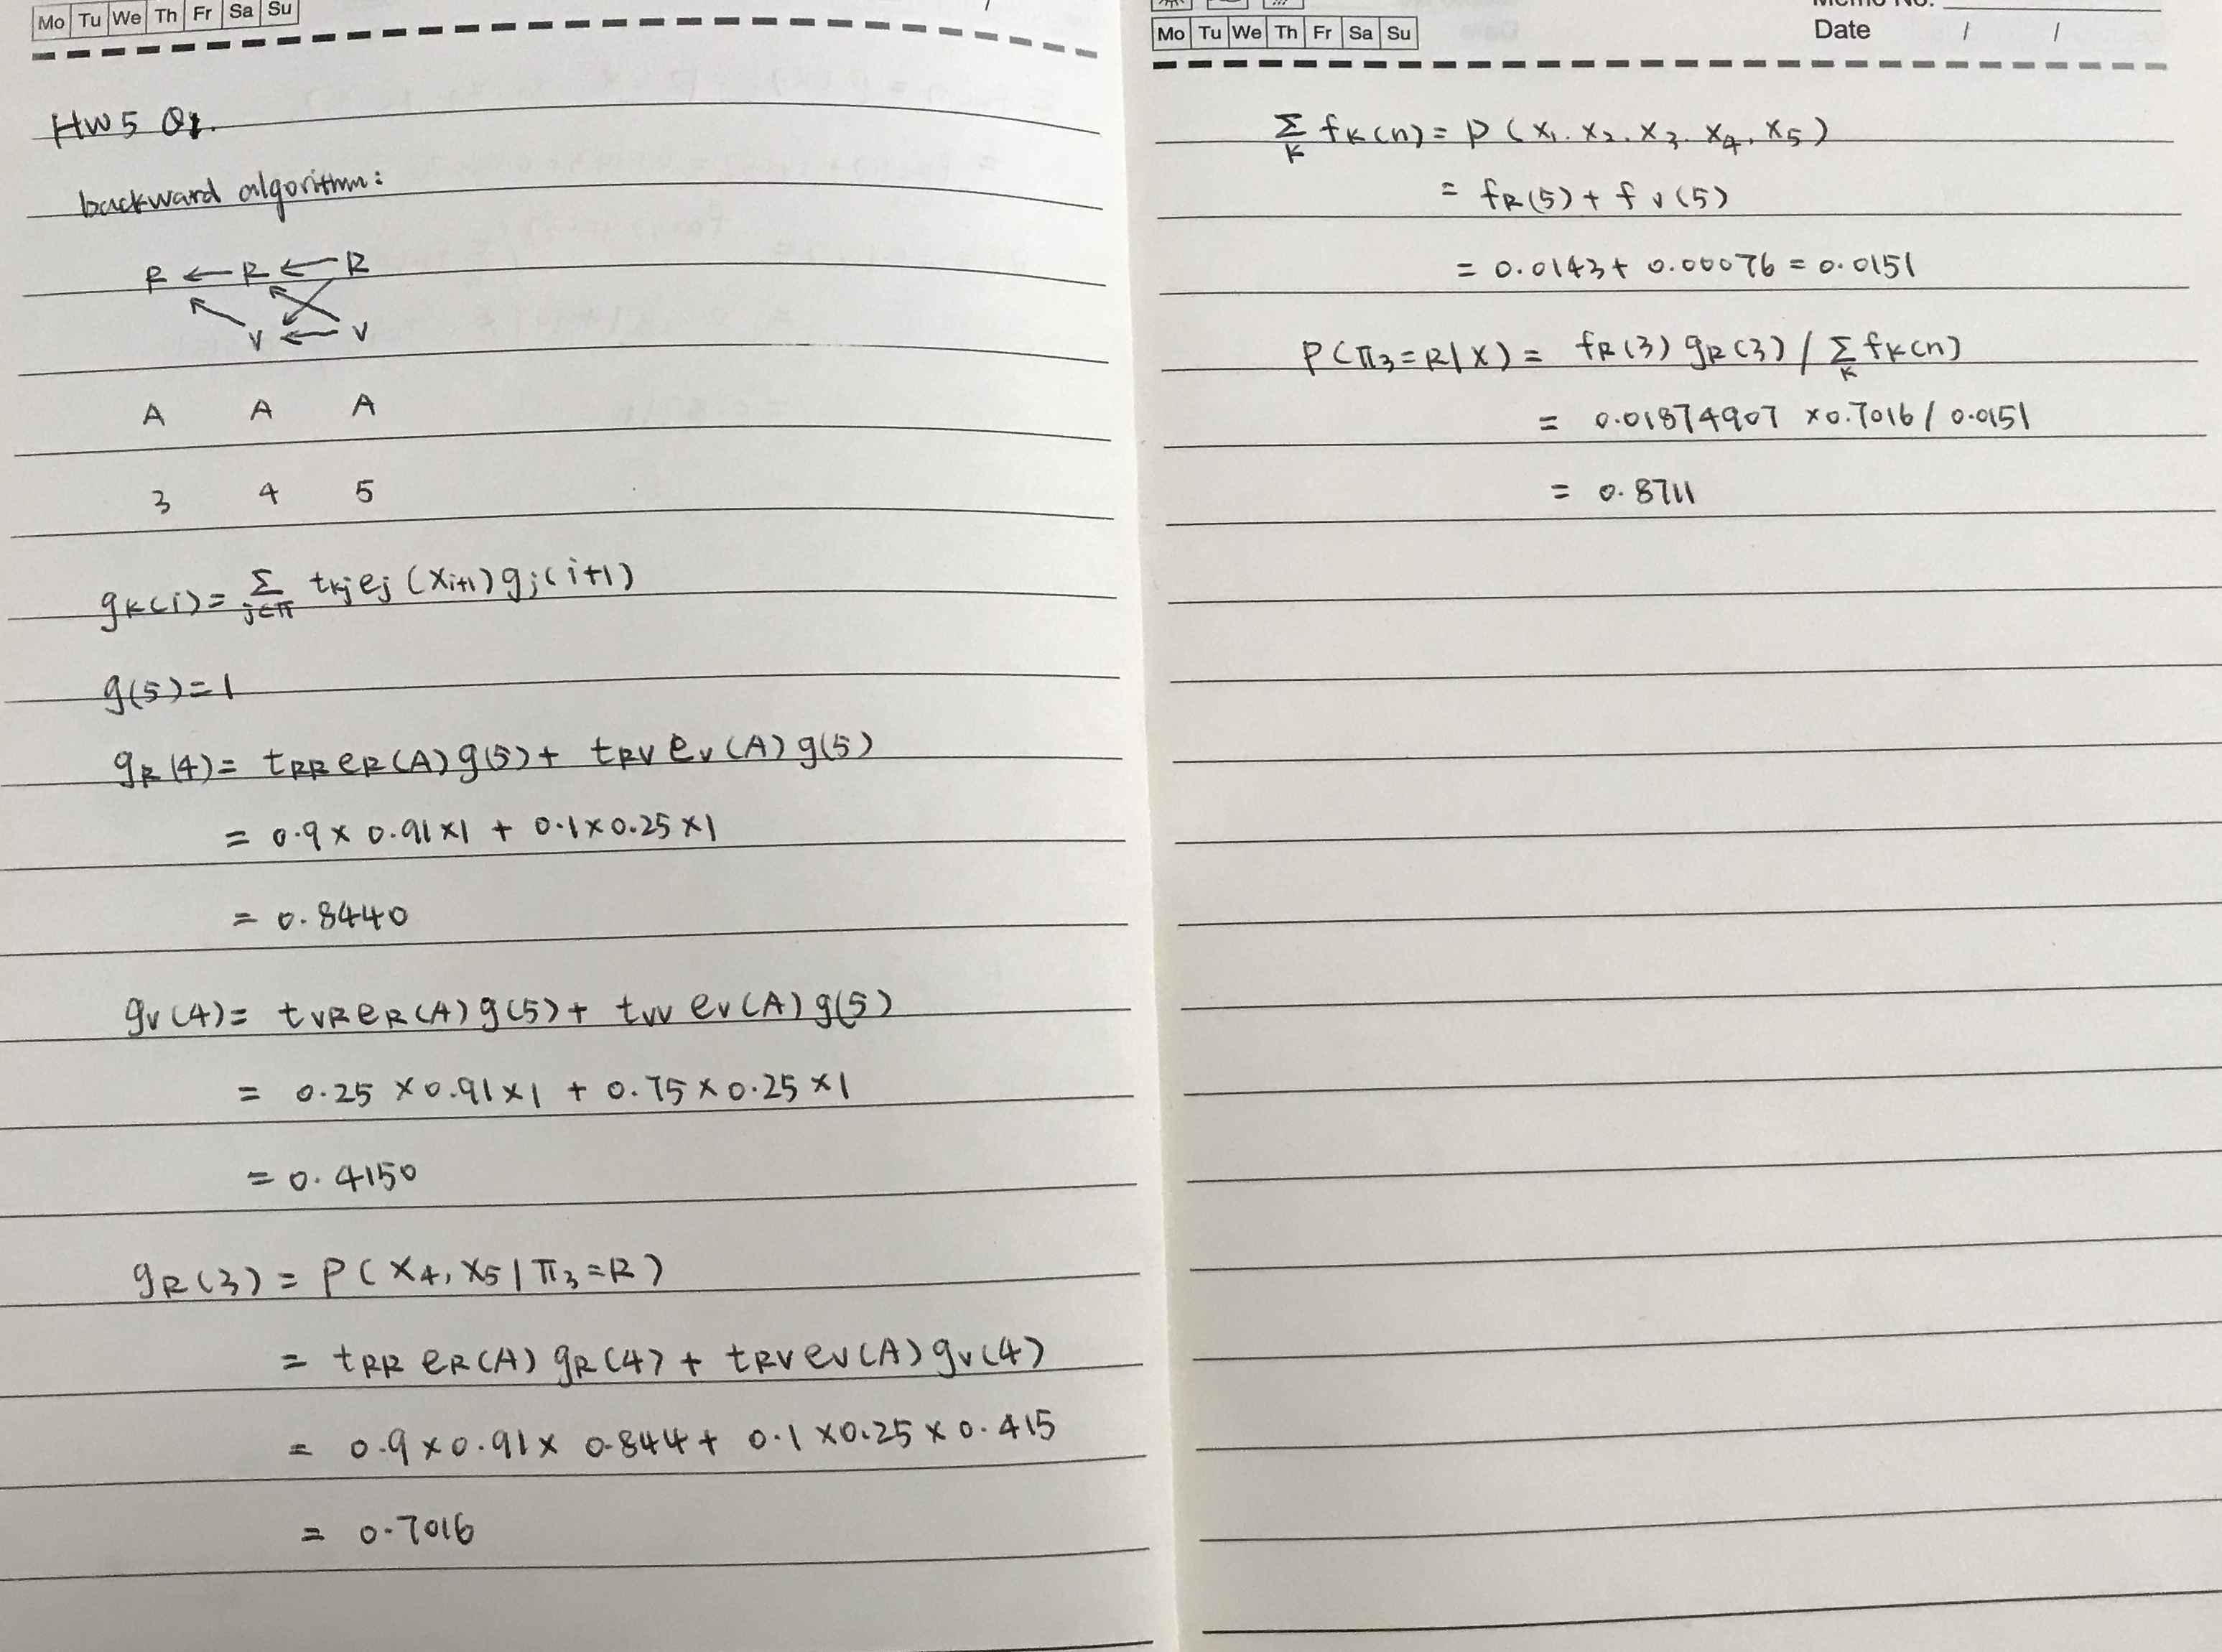 Mo Tu We Th Fr Sa Su
HW5 Q1.
backward algorithm:
R ← R ← R
V ← V
A A A
3 4 5
gK(i) = Σ j∈π tKj ej (xi+1) gj(i+1)
g(5)=1
gR(4)= tRR eR(A) g(5) + tRV eV(A) g(5)
= 0.9 × 0.91 ×1 + 0.1×0.25 ×1
= 0.8440
gV(4)= tVR eR(A) g(5) + tVV eV(A) g(5)
= 0.25 ×0.91×1 + 0.75×0.25 ×1
= 0.4150
gR(3) = P( x4, x5 | π3=R )
= tRR eR(A) gR(4) + tRV eV(A) gV(4)
= 0.9 ×0.91× 0.844 + 0.1 ×0.25 × 0.415
= 0.7016
Memo No.
Mo Tu We Th Fr Sa Su
Date / /
Σ K fK(n) = P ( x1. x2. x3. x4. x5 )
= fR(5) + fV(5)
= 0.0143 + 0.00076 = 0.0151
P(π3=R|X) = fR(3) gR(3) / Σ K fK(n)
= 0.01874907 ×0.7016 / 0.0151
= 0.8711